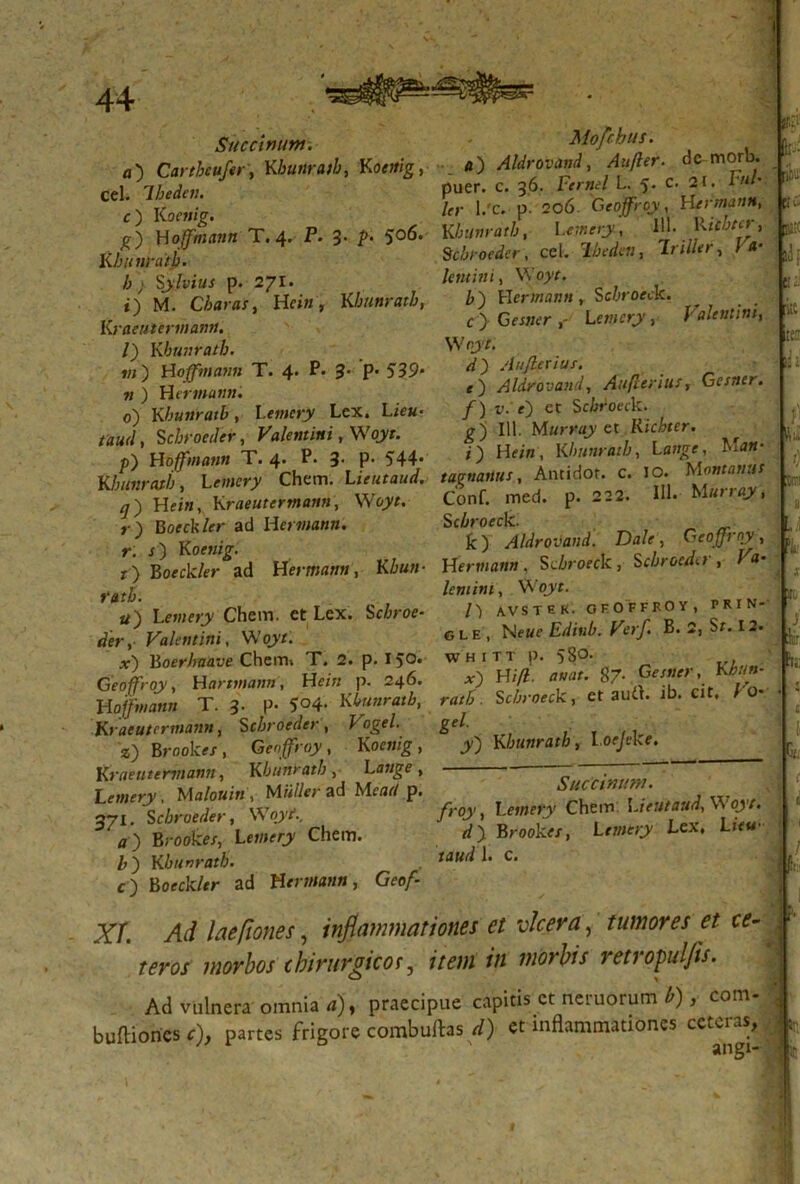 44
Succinum.
a) Cartheuser, Khunrath, Koenig,
cel. Theden.
c) Koenig.
g) Hoffmann T. 4. P. 3. p. 506.
Khunrath.
h) Sylvius p. 271.
i) M. Charas, Hein, Khunrath,
Kraeutermann.
l) Khunrath.
m) Hoffmann T. 4. P. 3. p. 539.
n) Hermann.
o) Khunrath, Lemery Lex. Lieu-
taud, Schroeder, Valentini, Woyt.
p) Hoffmann T. 4. P. 3. p. 544.
Khunrath, Lemery Chem. Lieutaud.
q) Hein, Kraeutermann, Woyt.
r) Boeckler ad Hermann.
r. s) Koenig.
t) Boeckler ad Hermann, Khun-
rath.
u) Lemery Chem. et Lex. Schroe-
der, Valentini, Woyt.
x) Boerhaave Chem. T. 2. p. 150.
Geoffroy, Hartmann, Hein p. 246.
Hoffmann T. 3. p. 504. Khunrath,
Kraeutermann, Schroeder, Vogel.
z) Brookes, Geoffroy, Koenig,
Kraeutermann, Khunrath, Lange,
Lemery, Malouin, Müller ad Mead p.
371. Schroeder, Woyt.
a) Brookes, Lemery Chem.
b) Khunrath.
c) Boeckler ad Hermann, Geof-
Moschus.
a) Aldrovand, Auster. de morb.
puer. c. 36. Fernel L. 5. c. 21. Ful-
ler l. c. p. 206. Geoffroy, Hermann,
Khunrath, Lemery, Ill. Richter,
Schroeder, cel. Theden, Triller, Va-
lentini, Woyt.
b) Hermann, Schroeck.
c) Gesner, Lemery, Valentini,
Woyt.
d) Austerius.
e) Aldrovand, Austerius, Gesner.
f) v. e) et Schroeck.
g) Ill. Murray et Richter.
i) Hein, Khunrath, Lange, Man-
tagnanus, Antidot. c. 10. Montanus
Conf. med. p. 222. Ill. Murray,
Schroeck.
k) Aldrovand. Dale, Geoffroy,
Hermann, Schroeck, Schroeder, Va-
lentini, Woyt.
l) AVSTER. GEOFFROY, PRIN-
GLE, Neue Edinb. Vers. B. 2, St. 12.
WHITT p. 580.
x) Hist. anat. 87. Gesner, Khun-
rath. Schroeck, et auct. ib. cit. Vo-
gel.
y) Khunrath, Loeseke.
Succinum.
froy, Lemery Chem. Lieutaud, Woyt.
d) Brookes, Lemery Lex. Lieu-
taud l. c.
XI. Ad laesiones, inflammationes et vlcera, tumores et ce-
teros morbos chirurgicos, item in morbis retropulsis.
Ad vulnera omnia a), praecipue capitis et neruorum b), com-
bustiones c), partes frigore combustas d) et inflammationes ceteras,
angi-